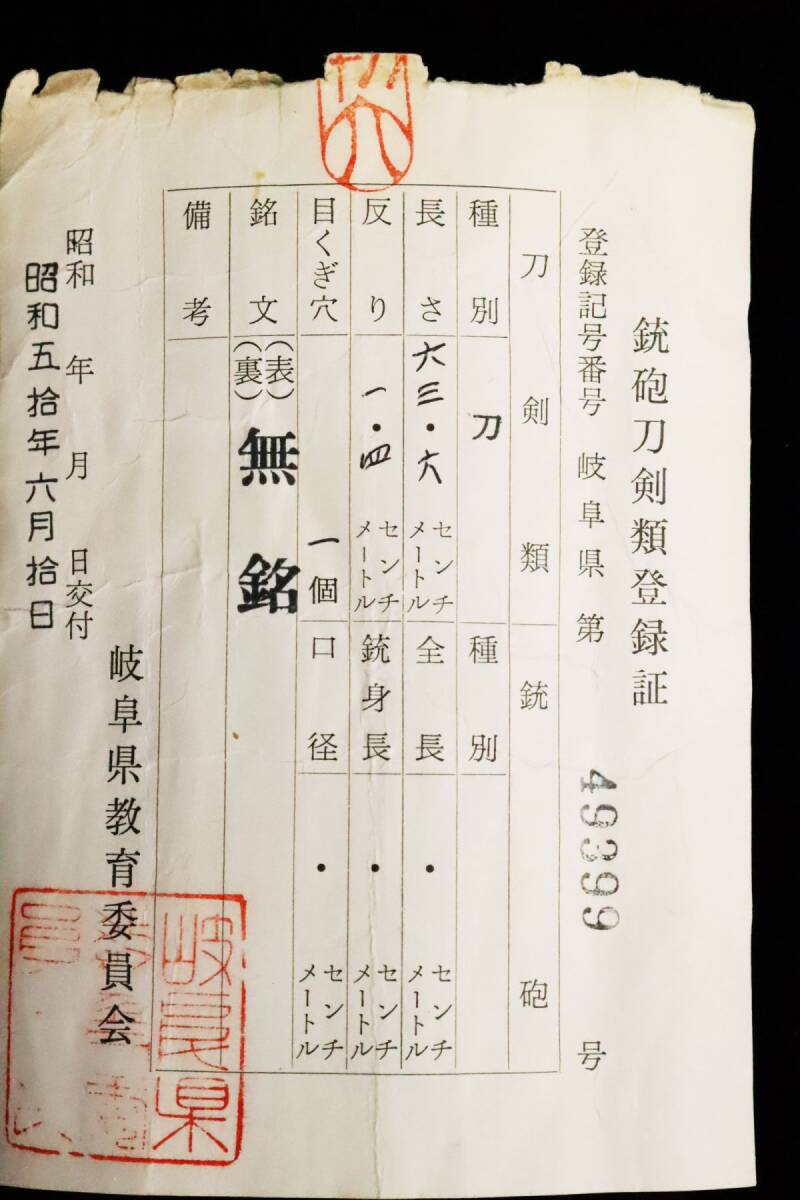 銃砲刀剣類登録証
登録記号番号 岐阜県 第 49399 号
刀剣類 銃砲
種別 刀 種別
長さ 六三・六 センチメートル 全長 ・ センチメートル
反り 一・四 センチメートル 銃身長 ・ センチメートル
目くぎ穴 一個 口径 ・ センチメートル
銘文 (表) (裏) 無銘
備考
昭和 年 月 日交付
昭和五拾年六月拾日
岐阜県教育委員会